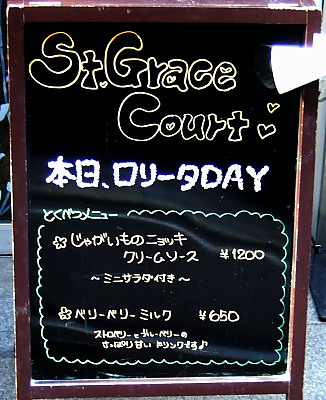 St.Grace
Court
本日、ロリータDAY
とくべつメニュー
じゃがいものニョッキ
クリームソース ¥1200
～ミニサラダ付き～
ベリーベリーミルク ¥650
ストロベリーとブルーベリーの
さっぱり甘いドリンクです♪